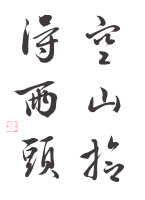 空山拾
得頭